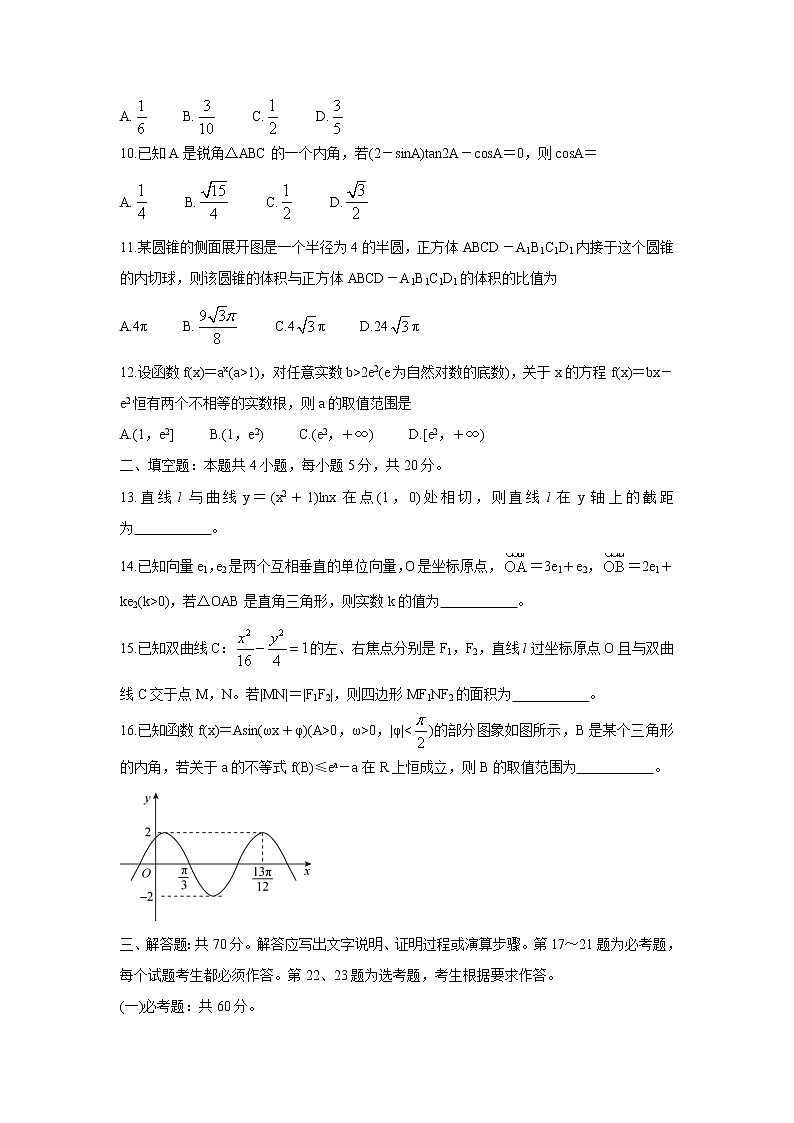 A. 1/6 B. 3/10 C. 1/2 D. 3/5
10.已知A是锐角△ABC的一个内角，若(2－sinA)tan2A－cosA＝0，则cosA＝
A. 1/4 B. √15/4 C. 1/2 D. √3/2
11.某圆锥的侧面展开图是一个半径为4的半圆，正方体ABCD－A₁B₁C₁D₁内接于这个圆锥
的内切球，则该圆锥的体积与正方体ABCD－A₁B₁C₁D₁的体积的比值为
A.4π B. 9√3π/8 C.4√3π D.24√3π
12.设函数f(x)＝aˣ(a>1)，对任意实数b>2e²(e为自然对数的底数)，关于x的方程f(x)＝bx－
e²恒有两个不相等的实数根，则a的取值范围是
A.(1，e²] B.(1，e²) C.(e²，+∞) D.[e²，+∞)
二、填空题：本题共4小题，每小题5分，共20分。
13.直线l与曲线y＝(x²＋1)lnx在点(1，0)处相切，则直线l在y轴上的截距
为___________。
14.已知向量e₁,e₂是两个互相垂直的单位向量,O是坐标原点，OA＝3e₁＋e₂，OB＝2e₁＋
ke₂(k>0)，若△OAB是直角三角形，则实数k的值为___________。
15.已知双曲线C：x²/16－y²/4＝1的左、右焦点分别是F₁，F₂，直线l过坐标原点O且与双曲
线C交于点M，N。若|MN|＝|F₁F₂|，则四边形MF₁NF₂的面积为___________。
16.已知函数f(x)＝Asin(ωx＋φ)(A>0，ω>0，|φ|<π/2)的部分图象如图所示，B是某个三角形
的内角，若关于a的不等式f(B)≤eᵃ－a在R上恒成立，则B的取值范围为___________。
y
2
O π/3 13π/12 x
−2
三、解答题：共70分。解答应写出文字说明、证明过程或演算步骤。第17～21题为必考题，
每个试题考生都必须作答。第22、23题为选考题，考生根据要求作答。
(一)必考题：共60分。